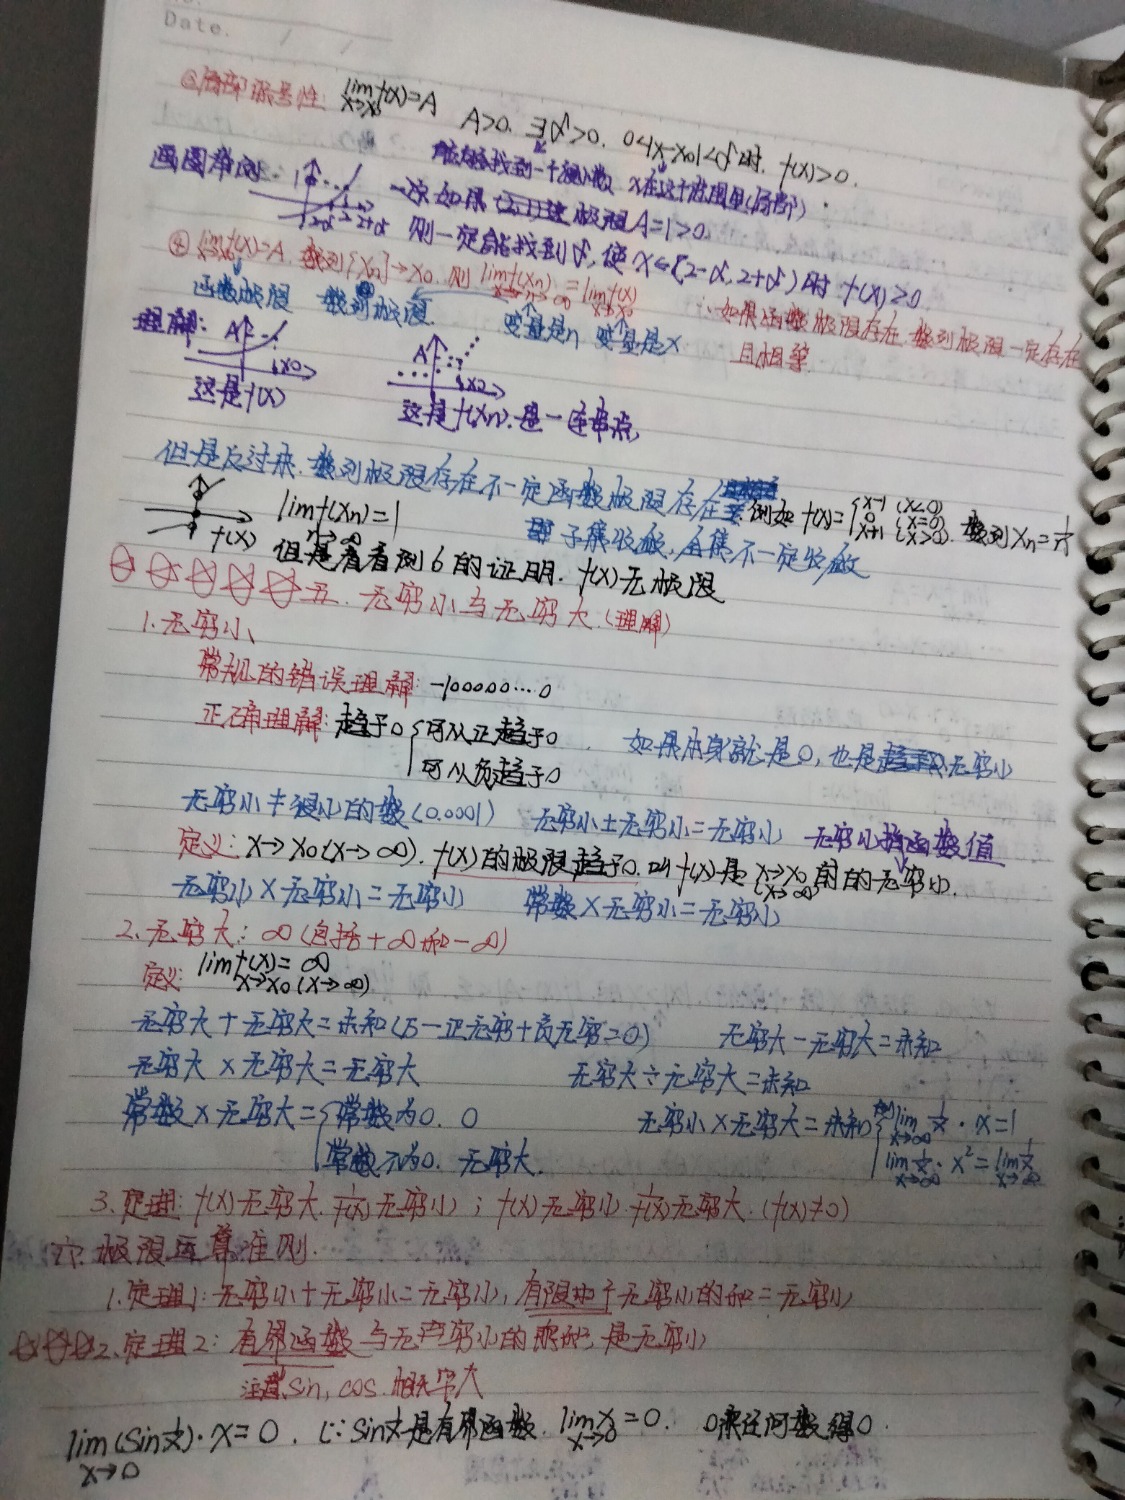 Date.
③局部保号性: lim x→x0 f(x)=A A>0. ∃δ>0. 0<|x-x0|<δ时. f(x)>0.
能够找到一个很小数 x在这个范围里(局部)
画图举例: 1 2-δ 2 2+δ 一次如果 极限A=1>0.
则一定能找到δ, 使x∈(2-δ, 2+δ)时 f(x)>0
④ lim f(x)=A. 数列{Xn}→X0. 则 lim n→∞ f(Xn) = lim x→x0 f(x)
函数极限 数列极限 变量是n 变量是x
∵如果函数极限存在, 数列极限一定存在
且相等
理解: A x0 A x0
这是f(x) 这是f(Xn). 是一连串点.
但是反过来. 数列极限存在不一定函数极限存在
例如 f(x)={x-1 (x<0) 0 (x=0) x+1 (x>0). 数列Xn=1/n
即子集收敛, 全集不一定收敛
f(x) lim n→∞ f(Xn)=1
但是看看到6的证明. f(x)无极限
五. 无穷小与无穷大.(理解)
1.无穷小
常规的错误理解: -100000…0
正确理解: 趋于0 {可以从正趋于0 . 如果本身就是0, 也是无穷小
可以从负趋于0
无穷小≠很小的数(0.0001) 无穷小±无穷小=无穷小 无穷小指函数值
定义: x→x0(x→∞). f(x)的极限趋于0. 叫f(x)是 x→x0 (x→∞) 时的无穷小.
无穷小×无穷小=无穷小 常数×无穷小=无穷小
2. 无穷大: ∞(包括+∞和-∞)
定义: lim f(x)=∞ x→x0(x→∞)
无穷大+无穷大=未知(万一正无穷+负无穷=0) 无穷大-无穷大=未知
无穷大×无穷大=无穷大 无穷大÷无穷大=未知
常数×无穷大={常数为0. 0 无穷小×无穷大=未知 {lim x→∞ 1/x · x=1
常数不为0. 无穷大. lim x→∞ 1/x · x²=lim x→∞
3.定理: f(x)无穷大. 1/f(x)无穷小); f(x)无穷小. 1/f(x)无穷大. (f(x)≠0)
六. 极限运算准则.
1.定理1: 无穷小+无穷小=无穷小, 有限个无穷小的和=无穷小
2.定理2: 有界函数与无穷小的乘积, 是无穷小
注意, sin, cos.
lim x→0 (sin 1/x)·x=0. (∵sin 1/x是有界函数. lim x→0 x=0. 0乘任何数得0.